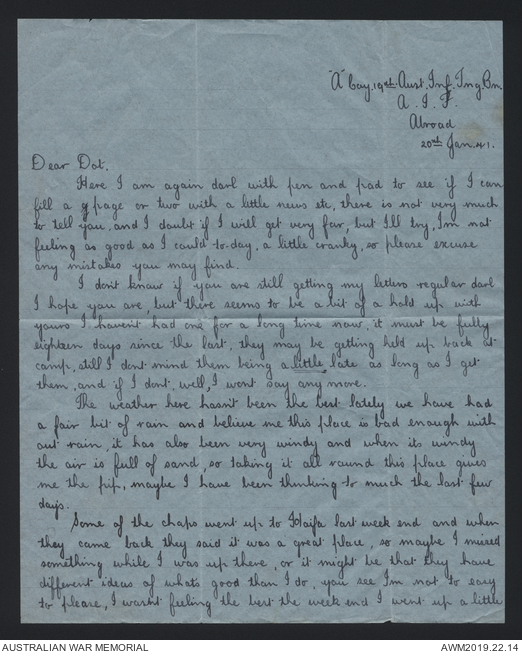 "A" Coy. 19th Aust. Inf. Tng Bn.
A. I. F.
Abroad
20th Jan. 41.
Dear Dot.
Here I am again darl with pen and pad to see if I can
fill a page or two with a little news etc, there is not very much
to tell you, and I doubt if I will get very far, but I'll try, I'm not
feeling as good as I could to-day, a little cranky, so please excuse
any mistakes you may find.
I don't know if you are still getting my letters regular darl
I hope you are, but there seems to be a bit of a hold up with
yours I haven't had one for a long time now, it must be fully
eighteen days since the last, they may be getting held up back at
camp, still I dont mind them being a little late as long as I get
them, and if I dont, well, I wont say any more.
The weather here hasn't been the best lately we have had
a fair bit of rain and believe me this place is bad enough with
out rain, it has also been very windy and when its windy
the air is full of sand, so taking it all round this place gives
me the pip, maybe I have been thinking to much the last few
days.
Some of the chaps went up to Haifa last week end and when
they came back they said it was a great place, so maybe I missed
something while I was up there, or it might be that they have
different ideas of whats good than I do, you see I'm not to easy
to please, I wasn't feeling the best the week end I went up a little
AUSTRALIAN WAR MEMORIAL
AWM2019.22.14